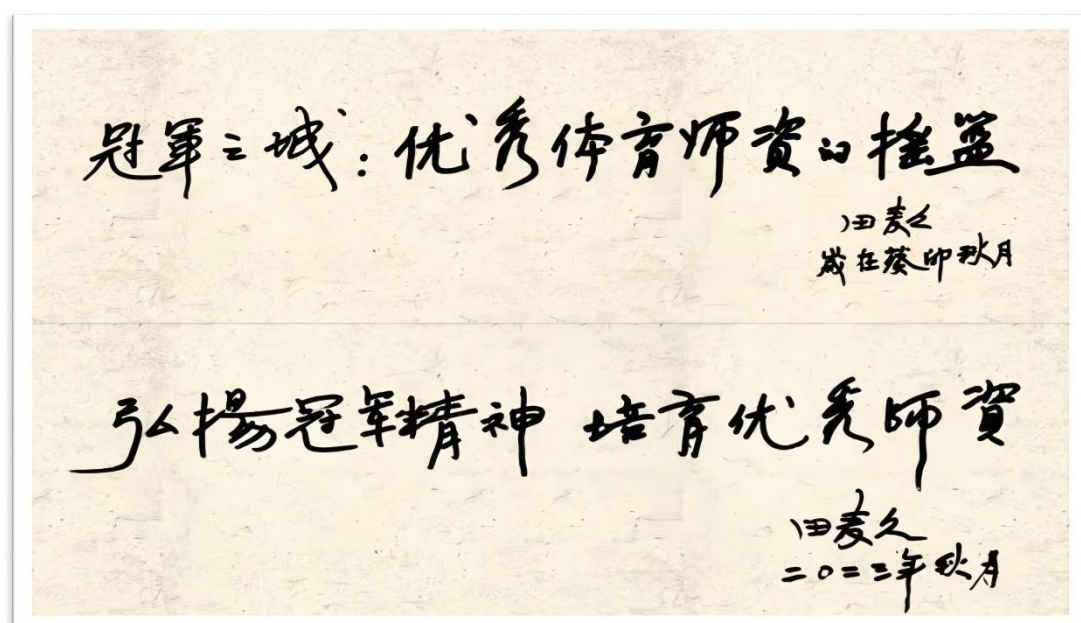 冠軍之城：优秀体育师資的摇篮
田麦久
岁在葵卯秋月
弘揚冠军精神 培育优秀师資
田麦久
二〇二三年秋月